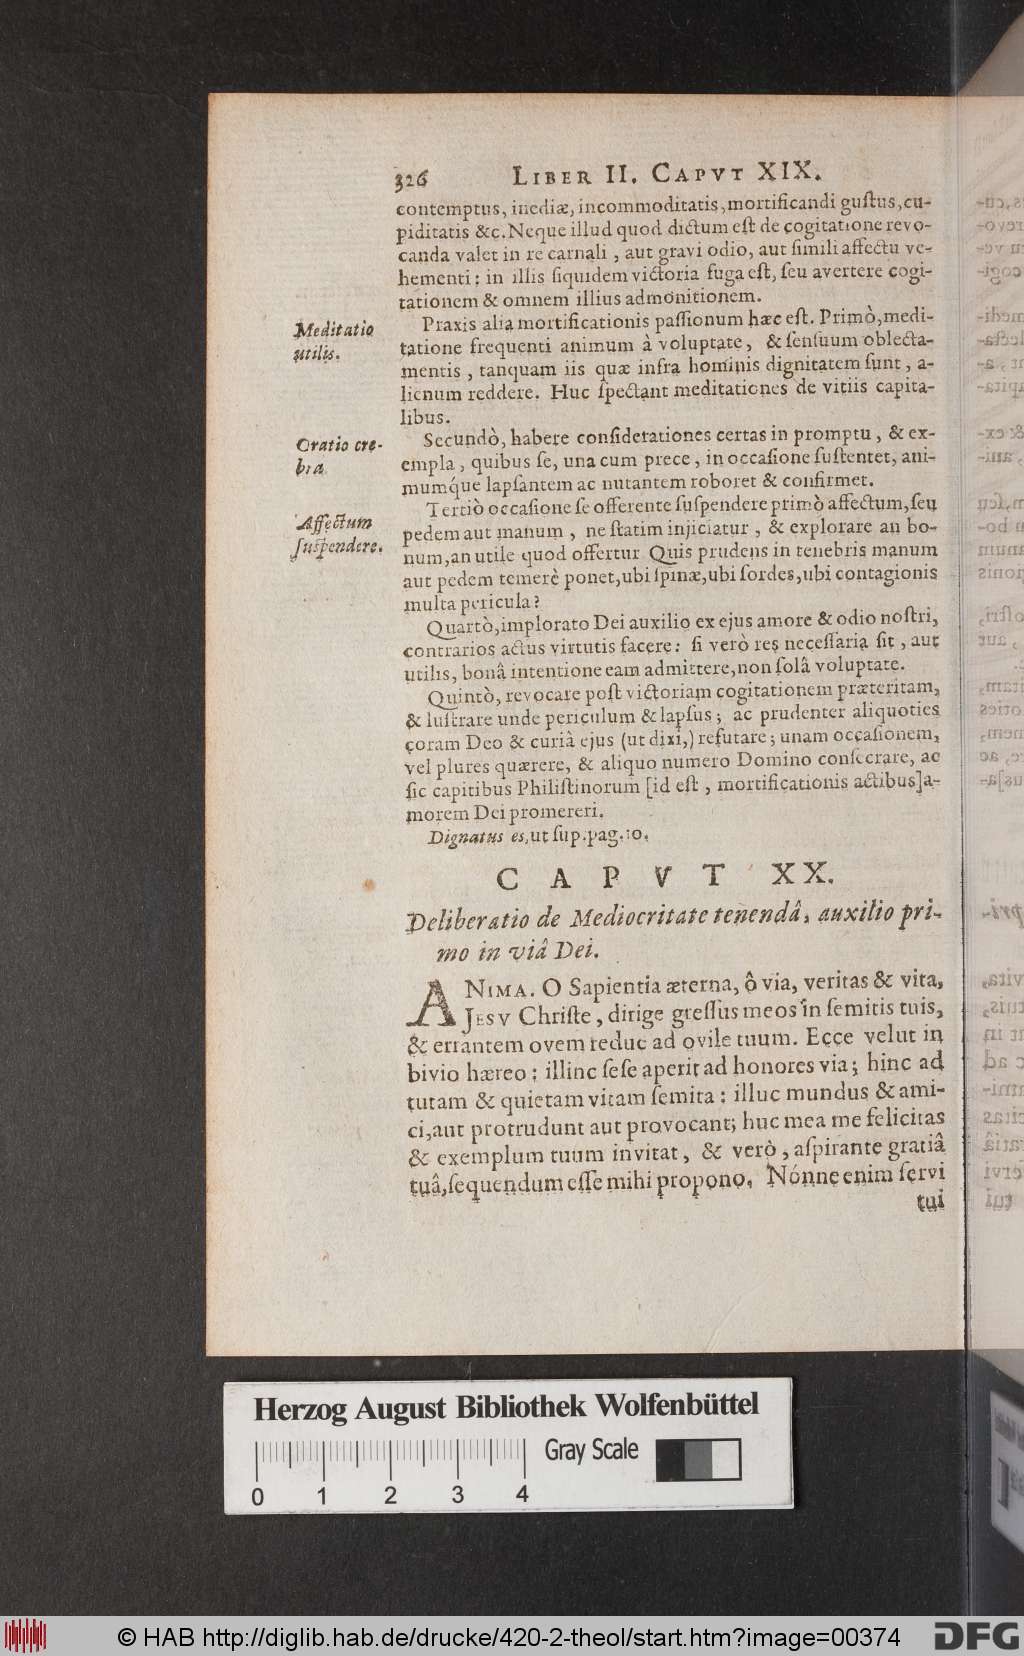 326 LIBER II. CAPVT XIX.
contemptus, inediæ, incommoditatis, mortificandi guſtus, cu-
piditatis &c. Neque illud quod dictum eſt de cogitatione revo-
canda valet in re carnali, aut gravi odio, aut ſimili affectu ve-
hementi: in illis ſiquidem victoria fuga eſt, ſeu avertere cogi-
tationem & omnem illius admonitionem.
Meditatio
utilis.
Praxis alia mortificationis paſſionum hæc eſt. Primò, medi-
tatione frequenti animum à voluptate, & ſenſuum oblecta-
mentis, tanquam iis quæ infra hominis dignitatem ſunt, a-
lienum reddere. Huc ſpectant meditationes de vitiis capita-
libus.
Oratio cre-
bra
Secundò, habere conſiderationes certas in promptu, & ex-
empla, quibus ſe, una cum prece, in occaſione ſuſtentet, ani-
mumq́ue lapſantem ac nutantem roboret & confirmet.
Affectum
ſuſpendere.
Tertiò occaſione ſe offerente ſuſpendere primò affectum, ſeu
pedem aut manum, ne ſtatim injiciatur, & explorare an bo-
num, an utile quod offertur Quis prudens in tenebris manum
aut pedem temerè ponet, ubi ſpinæ, ubi ſordes, ubi contagionis
multa pericula?
Quartò, implorato Dei auxilio ex ejus amore & odio noſtri,
contrarios actus virtutis facere: ſi verò res neceſſaria ſit, aut
utilis, bonâ intentione eam admittere, non ſolâ voluptate.
Quintò, revocare poſt victoriam cogitationem præteritam,
& luſtrare unde periculum & lapſus; ac prudenter aliquoties
coram Deo & curiâ ejus (ut dixi,) refutare; unam occaſionem,
vel plures quærere, & aliquo numero Domino conſecrare, ac
ſic capitibus Philiſtinorum [id eſt, mortificationis actibus] a-
morem Dei promereri.
Dignatus es, ut ſup. pag. 10.
CAPVT XX.
Deliberatio de Mediocritate tenendâ, auxilio pri-
mo in viâ Dei.
ANIMA. O Sapientia æterna, ô via, veritas & vita,
JESV Chriſte, dirige greſſus meos in ſemitis tuis,
& errantem ovem reduc ad ovile tuum. Ecce velut in
bivio hæreo: illinc ſeſe aperit ad honores via; hinc ad
tutam & quietam vitam ſemita: illuc mundus & ami-
ci, aut protrudunt aut provocant; huc mea me felicitas
& exemplum tuum invitat, & verò, aſpirante gratiâ
tuâ, ſequendum eſſe mihi propono. Nónne enim ſervi
tui
Herzog August Bibliothek Wolfenbüttel
Gray Scale
0 1 2 3 4
© HAB http://diglib.hab.de/drucke/420-2-theol/start.htm?image=00374
DFG